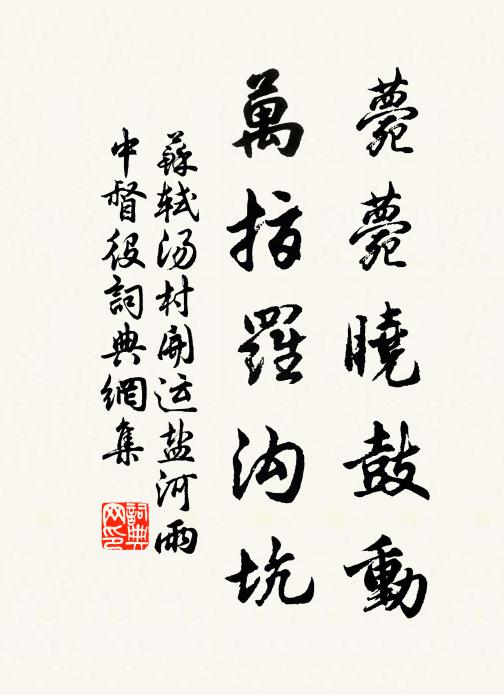 薨薨曉鼓動
萬指羅沟坑
蘇軾汤村開运盐河雨
中督役詞典網集
詞典
网印